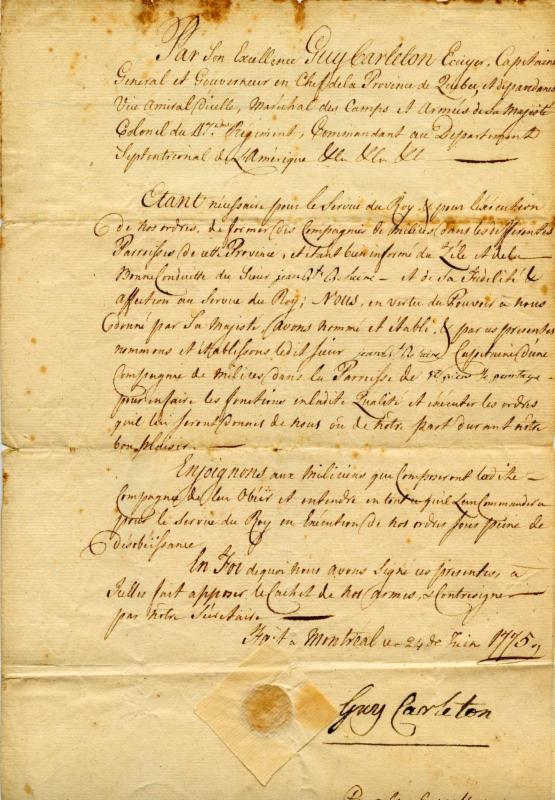 Par Son Excellence Guy Carleton Ecuyer, Capitaine
General et Gouverneur en Chef de la Province de Quebec, et dépendances
Vice Amiral d'icelle, Maréchal des Camps et Armées de Sa Majesté
Colonel du 47.eme Regiment, Commandant au Departement
Septentrional de L'Amérique &a &a &a
Etant nécessaire pour le Service du Roy, & pour l'éxécution
de nos ordres, de former des Compagnies de milices dans les differentes
Parroisses de cette Province, et étant bien informé du Zéle et de la
Bonne Conduitte du Sieur jean - et de sa Fidélité &
affection au Service du Roy; Nous, en vertu du Pouvoir a nous
donné par Sa Majesté avons nommé et établi, & par ces presentes
nommons et établissons ledit sieur jean Capitaine d'une
Compagnie de milices dans la Parroisse de
pour en faire les fonctions en ladite Qualité et éxécuter les ordres
qui lui seront donnés de nous ou de nôtre part durant nôtre
bon plaisir.
Enjoignons aux miliciens qui Composeront ladite
Compagnie de leur Obéir et entendre en tout ce qu'il leur Commandera
pour le Service du Roy en éxécution de nos ordres sous peine de
désobéissance
En Foi dequoi nous avons signé ces présentes, à
Icelles fait apposer le Cachet de nos armes, & Contresigner
par nôtre Sécrétaire.
Fait a Montréal ce 24 de Juin 1775
Guy Carleton